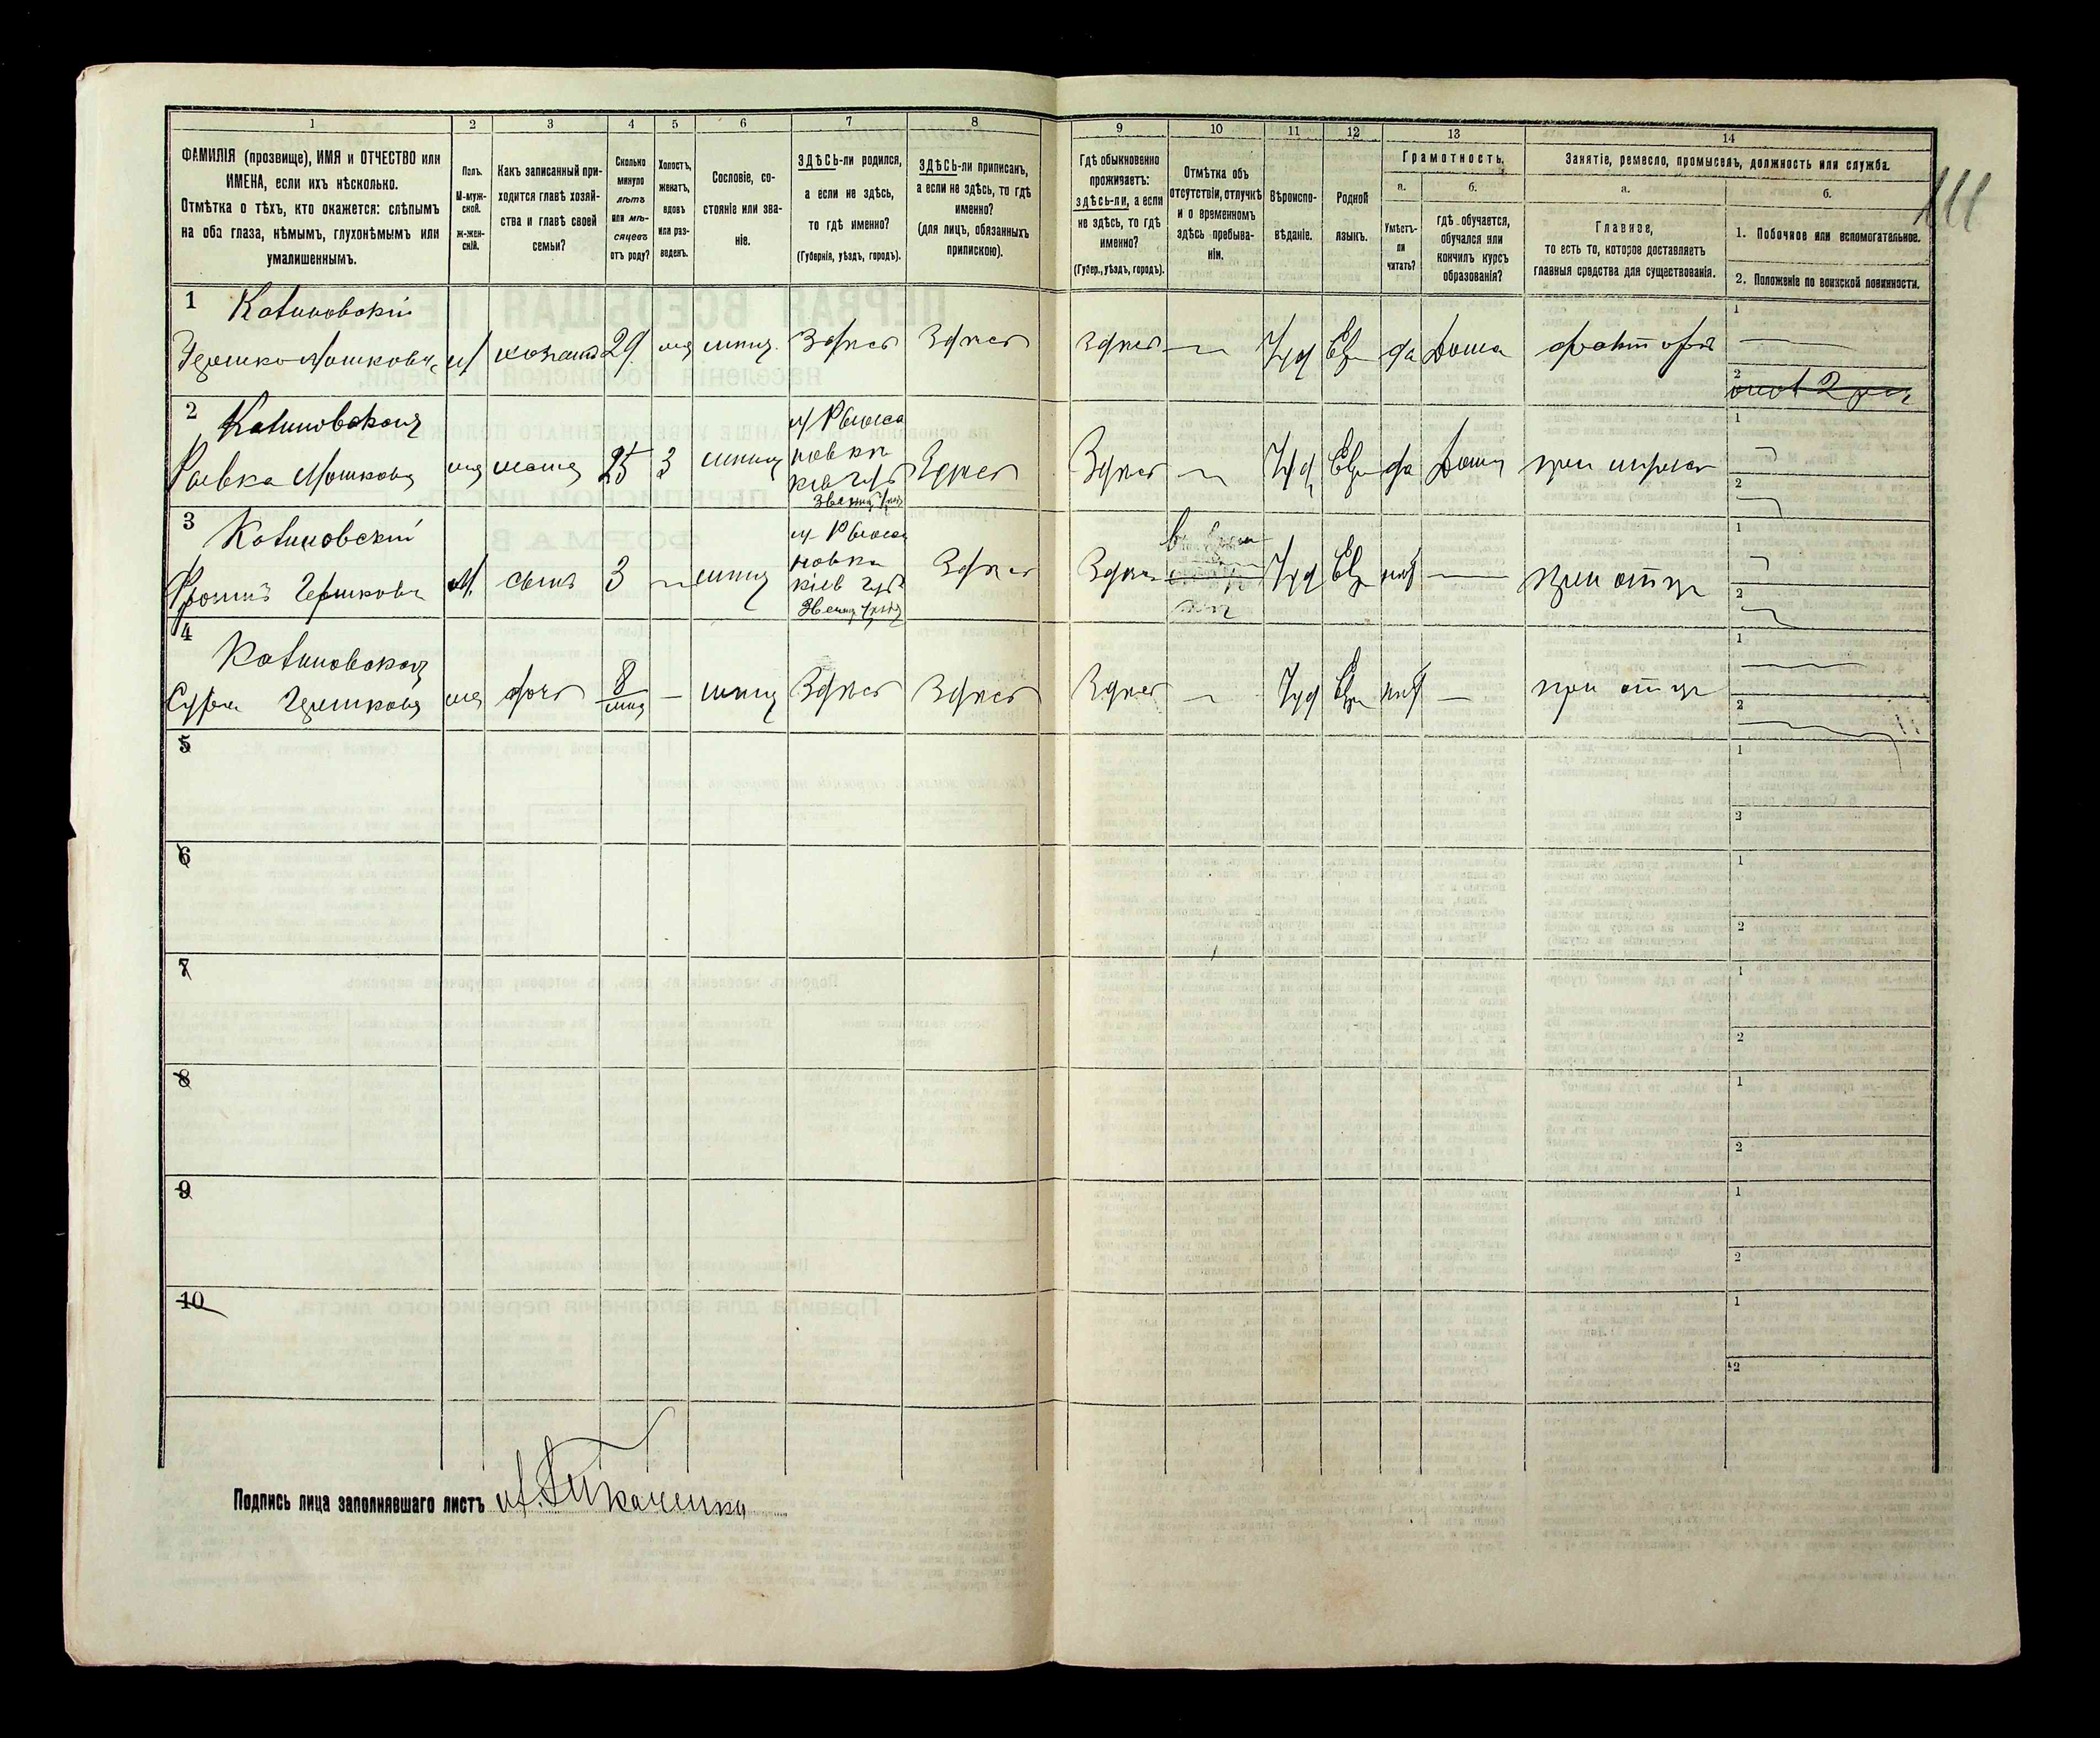 1
2
3
4
5
6
7
8
9
10
11
12
13
14
ФАМИЛІЯ (прозвище), ИМЯ и ОТЧЕСТВО или
ИМЕНА, если ихъ нѣсколько.
Отмѣтка о тѣхъ, кто окажется: слѣпымъ
на оба глаза, нѣмымъ, глухонѣмымъ или
умалишеннымъ.
Полъ.
М-муж-
ской.
Ж-жен-
скій.
Какъ записанный при-
ходится главѣ хозяй-
ства и главѣ своей
семьи?
Сколько
минуло
лѣтъ
или мѣ-
сяцевъ
отъ роду?
Холостъ,
женатъ,
вдовъ
или раз-
веденъ.
Сословіе, со-
стояніе или зва-
ніе.
ЗДѢСЬ-ли родился,
а если не здѣсь,
то гдѣ именно?
(Губернія, уѣздъ, городъ).
ЗДѢСЬ-ли приписанъ,
а если не здѣсь, то гдѣ
именно?
(для лицъ, обязанныхъ
припискою).
Гдѣ обыкновенно
проживаетъ:
здѣсь-ли, а если
не здѣсь, то гдѣ
именно?
(Губер., уѣздъ, городъ).
Отмѣтка объ
отсутствіи, отлучкѣ
и о временномъ
здѣсь пребыва-
ніи.
Вѣроиспо-
вѣданіе.
Родной
языкъ.
Грамотность.
а.
Умѣетъ-
ли
читать?
б.
гдѣ обучается,
обучался или
кончилъ курсъ
образованія?
Занятіе, ремесло, промыселъ, должность или служба.
а.
Главное,
то есть то, которое доставляетъ
главныя средства для существованія.
б.
1. Побочное или вспомогательное.
2. Положеніе по воинской повинности.
111
1 Катиновскій
Гершко Мошковъ м хозяинъ 29 жен мѣщ. Здѣсь Здѣсь Здѣсь — Іуд Евр да Дома факторъ
1
2
2 Катиновская
м Рыжа
Ривка Мошкова же жена 25 З мѣщ новки Здѣсь Здѣсь — Іуд Евр да Дома при мужѣ
кіев губ
Звениг Уѣзд
1
2
3 Катиновскій
м Рыжа
новка
Фроимъ Гершковъ М. сынъ 3 — мѣщ кіев губ Здѣсь Здѣсь Іуд Евр нѣт — при отцѣ
Звениг Уѣзд
1
2
4
Катиновская
Сура Гершкова же дочь 8 мѣс — мѣщ Здѣсь Здѣсь Здѣсь — Іуд Евр нѣт — при отцѣ
1
2
5
1
2
6
1
2
7
1
2
8
1
2
9
1
2
10
1
2
Подпись лица заполнявшаго листъ М. Ткаченко